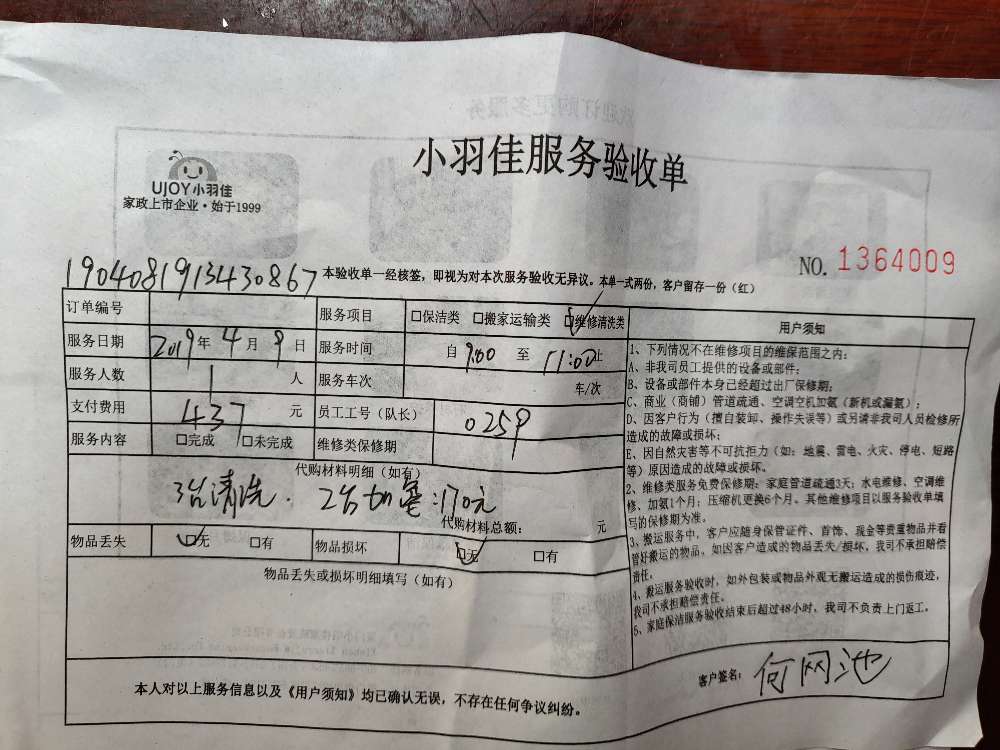 小羽佳服务验收单
UJOY小羽佳
家政上市企业·始于1999
NO. 1364009
1904081913430867
本验收单一经核签，即视为对本次服务验收无异议。本单一式两份，客户留存一份（红）
订单编号 服务项目 □保洁类 □搬家运输类 □维修清洗类
服务日期 2019年4月9日 服务时间 自 9:00 至 11:00止
服务人数 1 人 服务车次 车/次
支付费用 437 元 员工工号（队长） 0259
服务内容 □完成 □未完成 维修类保修期
代购材料明细（如有）
3台清洗. 2台加氢:170元
代购材料总额: 元
物品丢失 □无 □有 物品损坏 □无 □有
物品丢失或损坏明细填写（如有）
本人对以上服务信息以及《用户须知》均已确认无误，不存在任何争议纠纷。
用户须知
1、下列情况不在维修项目的维保范围之内:
A、非我司员工提供的设备或部件;
B、设备或部件本身已经超过出厂保修期;
C、商业（商铺）管道疏通、空调空机加氨（新机或漏氨）;
D、因客户行为（擅自装卸、操作失误等）或另请非我司人员检修所
造成的故障或损坏;
E、因自然灾害等不可抗拒力（如: 地震、雷电、火灾、停电、短路
等）原因造成的故障或损坏。
2、维修类服务免费保修期: 家庭管道疏通3天; 水电维修、空调维
修、加氨1个月; 压缩机更换6个月。其他维修项目以服务验收单填
写的保修期为准。
3、搬运服务中，客户应随身保管证件、首饰、现金等贵重物品并看
管好搬运的物品，如因客户造成的物品丢失/损坏，我司不承担赔偿
责任。
4、搬运服务验收时，如外包装或物品外观无搬运造成的损伤痕迹，
我司不承担赔偿责任。
5、家庭保洁服务验收结束后超过48小时，我司不负责上门返工。
客户签名: 何网池